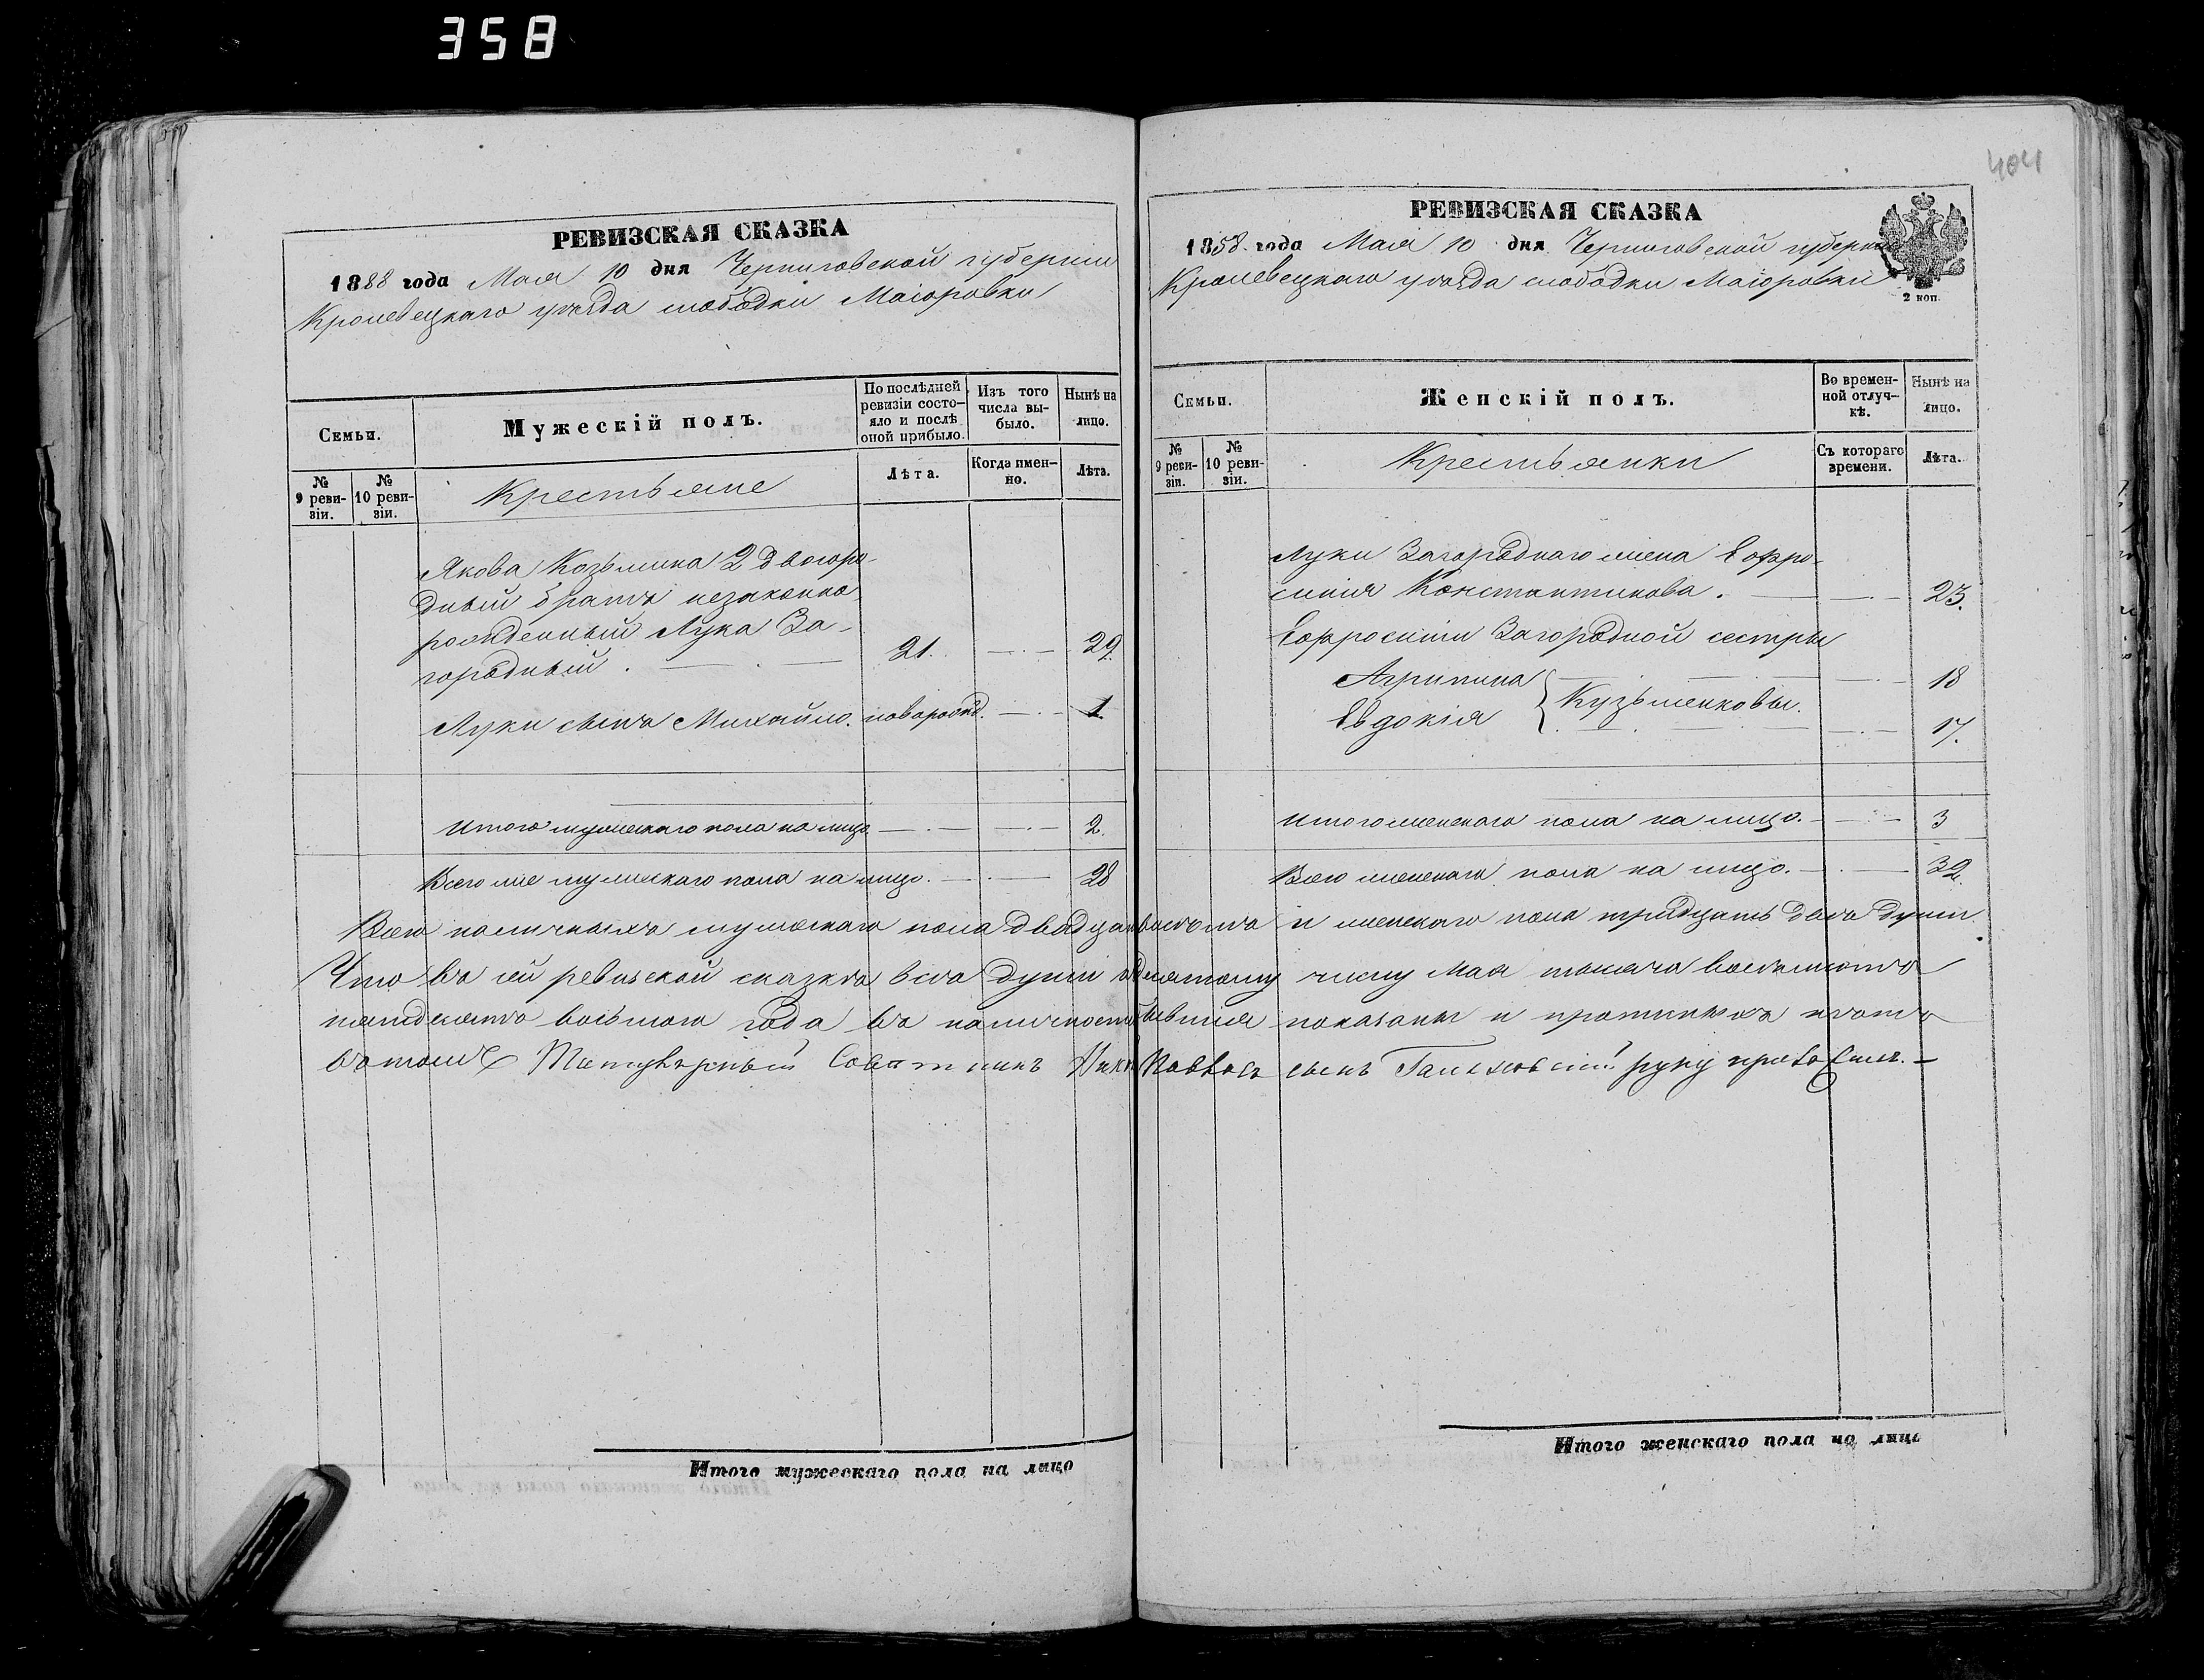 358
404
РЕВИЗСКАЯ СКАЗКА
1858 года Мая 10 дня Черниговской губернии
Кролевецкаго уѣзда слободки Маіоровки
Семьи.
Мужескій полъ.
По послѣдней ревизіи состо-
яло и послѣ оной прибыло.
Изъ того числа вы-
было.
Нынѣ на лицо.
№ 9 реви-
зіи.
№ 10 реви-
зіи.
Крестьяне
Лѣта.
Когда имен-
но.
Лѣта.
Якова Козьмина 2 двоюро-
дный братъ незаконно
рожденный Лука За-
городный. 21. 29.
Луки сынъ Михайло. новорожд. 1
Итого мужескаго пола на лицо 2.
Всего же мужескаго пола на лицо. 28
РЕВИЗСКАЯ СКАЗКА
1858 года Мая 10 дня Черниговской губерніи
Кролевецкаго уѣзда слободки Маіоровки
2 коп.
Семьи.
Женскій полъ.
Во времен-
ной отлуч-
кѣ.
Нынѣ на лицо.
№ 9 реви-
зіи.
№ 10 реви-
зіи.
Крестьянки
Съ котораго времени.
Лѣта.
Луки Загороднаго жена Ефро-
синія Константинова. 23.
Ефросиніи Загородной сестры
Агрипина 18
Кузьменковы.
Евдокія 17.
Итого женскаго пола на лицо. 3
Всего женскаго пола на лицо. 32.
Всего наличныхъ мужескаго пола двадцать восемь и женскаго пола тридцать двѣ души.
Что въ сей ревизской сказкѣ всѣ души къ десятому числу Мая тысяча восемьсотъ
пятдесятъ восьмого года въ наличности бывшія показаны и прописныхъ нѣтъ
въ томъ Титулярный Совѣтникъ Павловъ сынъ руку приложилъ. –
Итого мужескаго пола на лицо
Итого женскаго пола на лицо